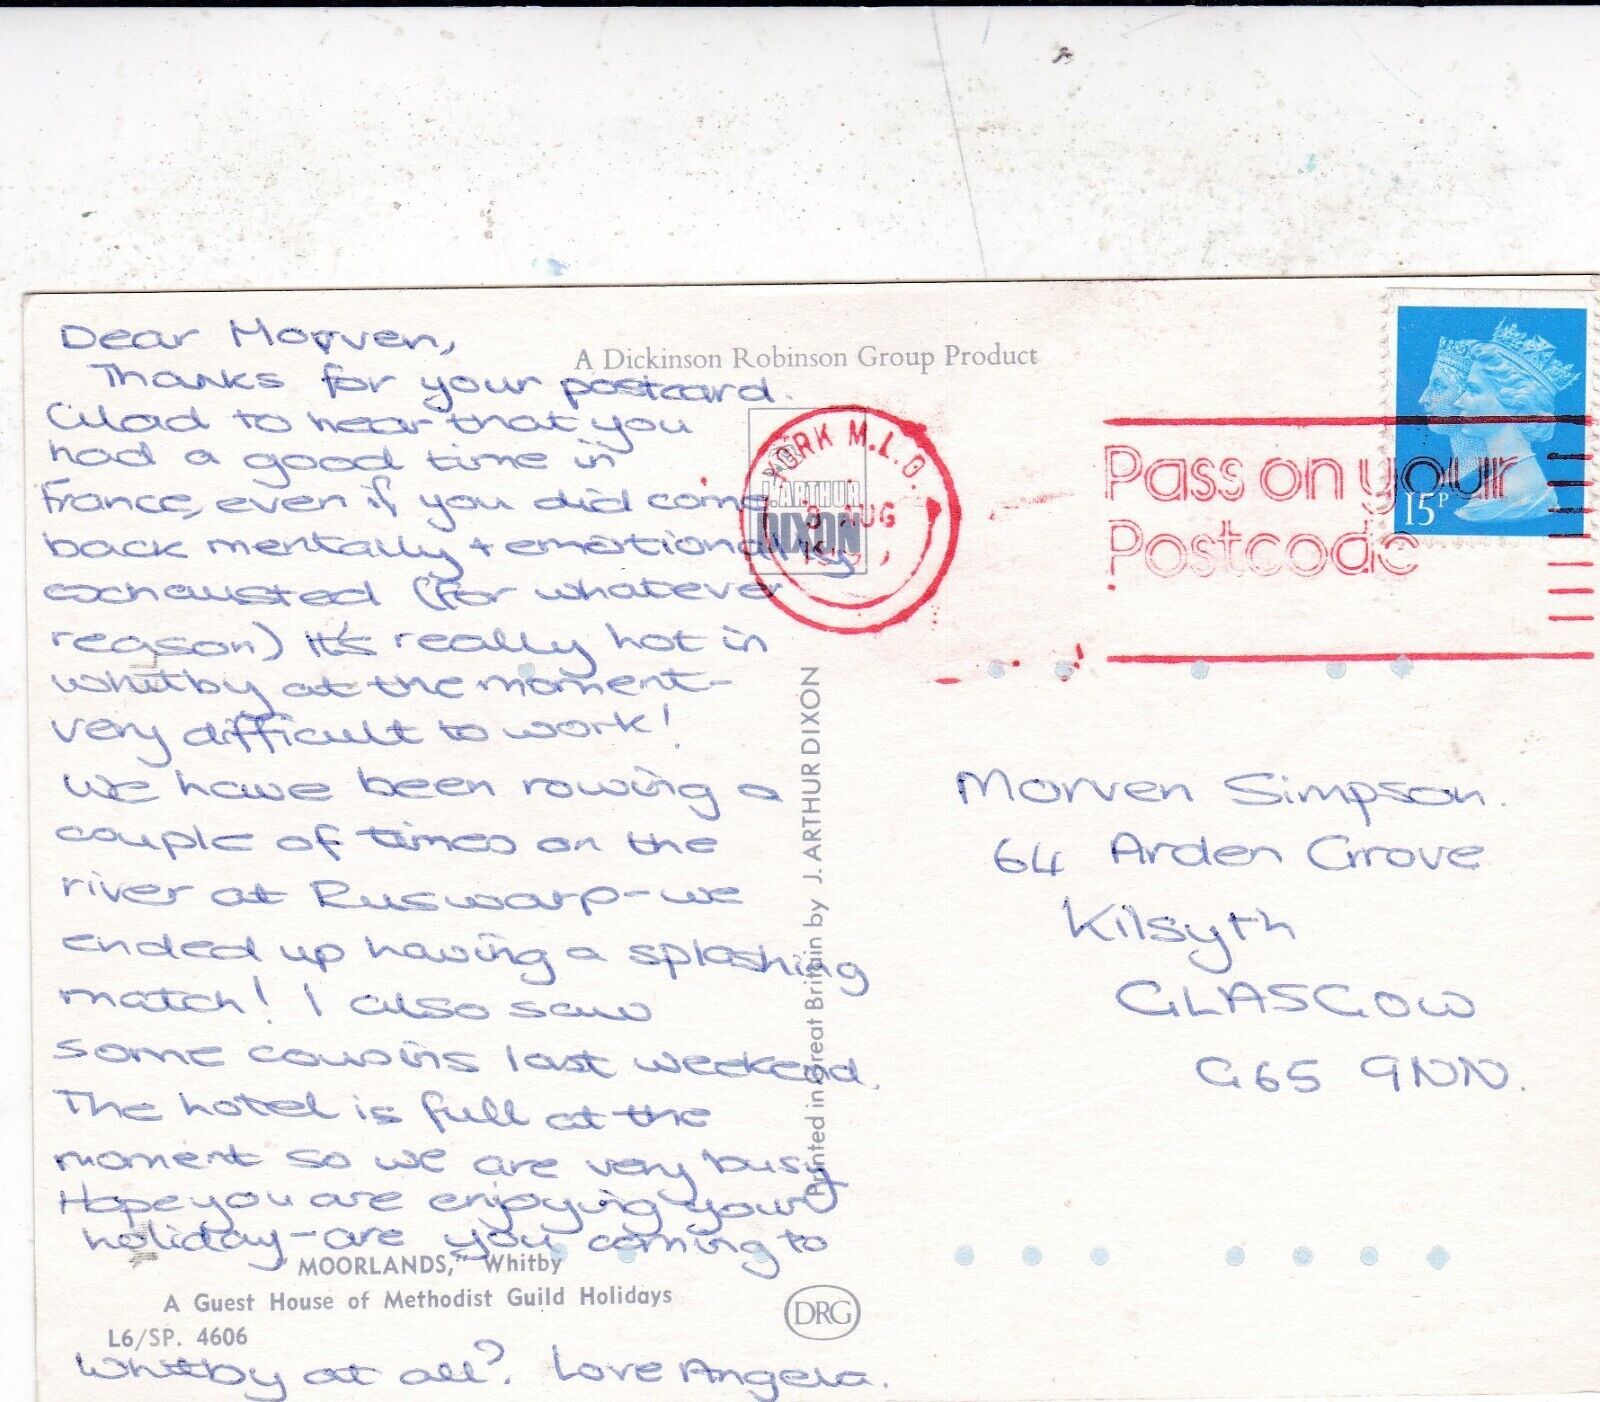 Dear Morven,
Thanks for your postcard.
Glad to hear that you
had a good time in
France, even if you did come
back mentally + emotionally
exhausted (for whatever
reason) It's really hot in
Whitby at the moment-
very difficult to work!
We have been rowing a
couple of times on the
river at Ruswarp-we
ended up having a splashing
match! I also saw
some cousins last weekend.
The hotel is full at the
moment so we are very busy
Hope you are enjoying your
holiday-are you coming to
Whitby at all? Love Angela.
"MOORLANDS," Whitby
A Guest House of Methodist Guild Holidays
L6/SP. 4606
A Dickinson Robinson Group Product
J.ARTHUR
DIXON
YORK M.L.O.
AUG
Printed in Great Britain by J. ARTHUR DIXON
DRG
Pass on your
Postcode
15P
Morven Simpson.
64 Arden Grove
Kilsyth
GLASGOW
G65 9NN.